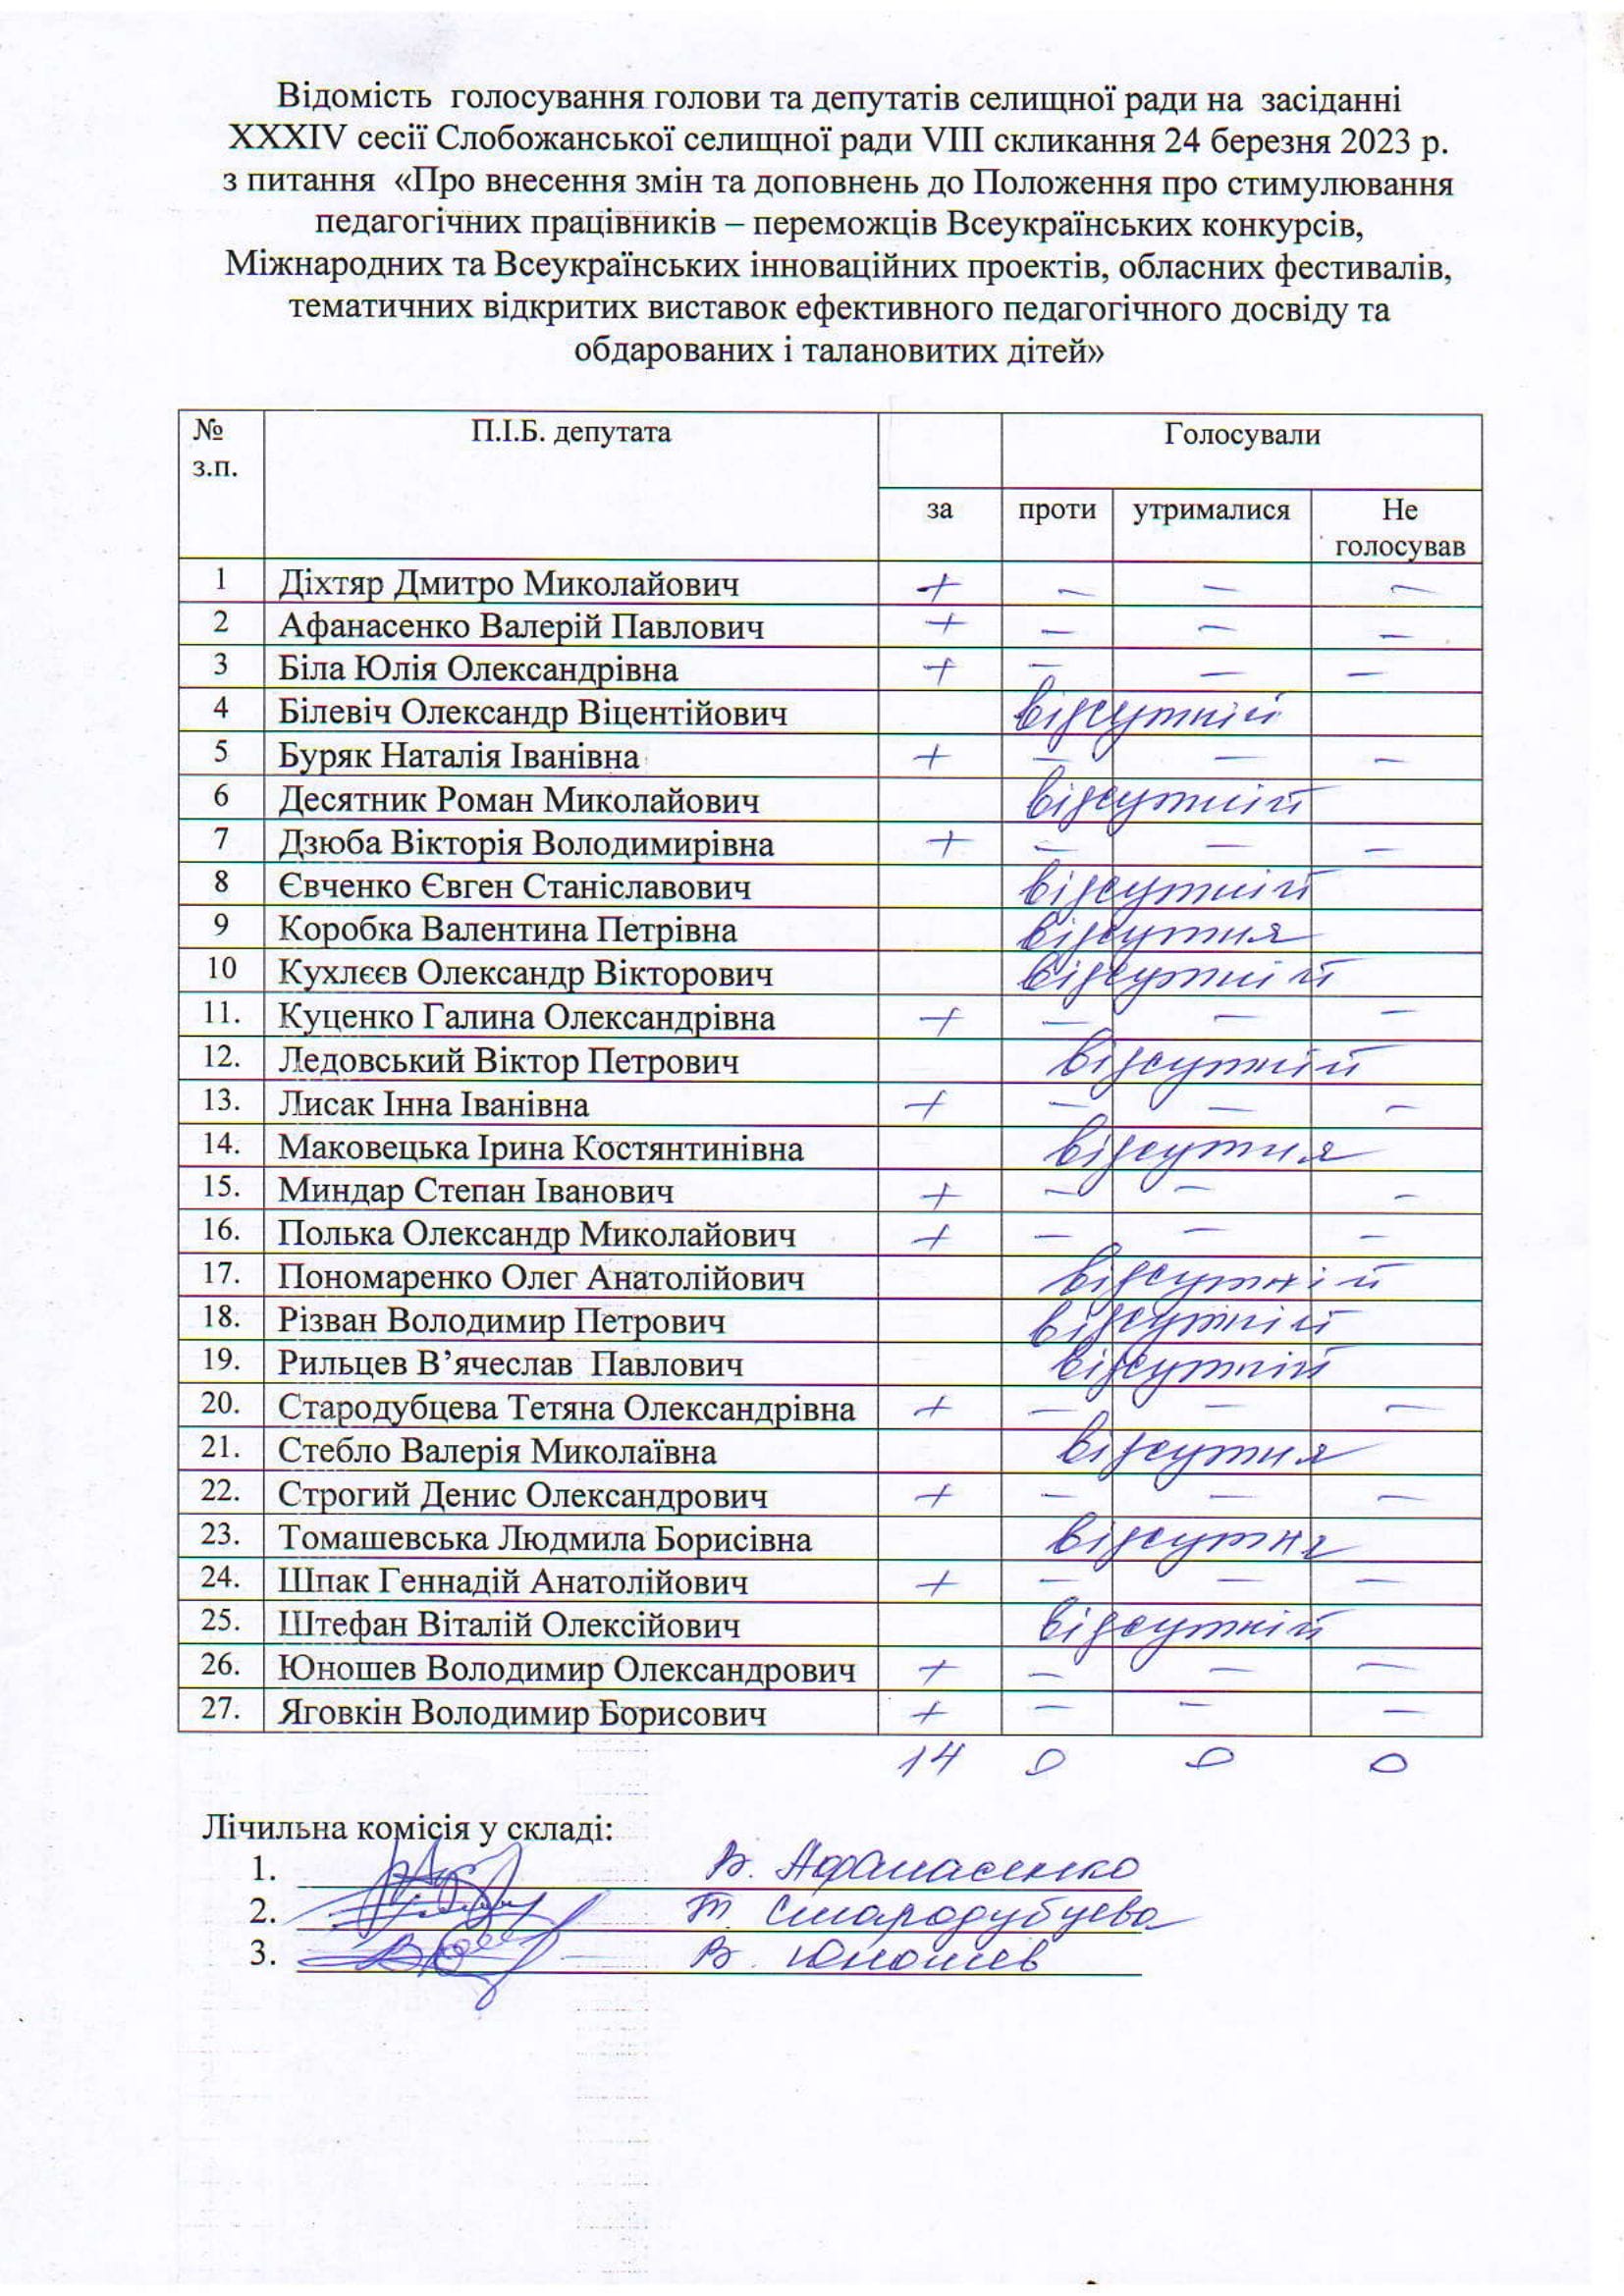 Відомість голосування голови та депутатів селищної ради на засіданні
XXXIV сесії Слобожанської селищної ради VIII скликання 24 березня 2023 р.
з питання «Про внесення змін та доповнень до Положення про стимулювання
педагогічних працівників – переможців Всеукраїнських конкурсів,
Міжнародних та Всеукраїнських інноваційних проектів, обласних фестивалів,
тематичних відкритих виставок ефективного педагогічного досвіду та
обдарованих і талановитих дітей»
№ з.п. П.І.Б. депутата Голосували
за проти утрималися Не голосував
1 Діхтяр Дмитро Миколайович + – – –
2 Афанасенко Валерій Павлович + – – –
3 Біла Юлія Олександрівна + – – –
4 Білевіч Олександр Віцентійович відсутній
5 Буряк Наталія Іванівна + – – –
6 Десятник Роман Миколайович відсутній
7 Дзюба Вікторія Володимирівна + – – –
8 Євченко Євген Станіславович відсутній
9 Коробка Валентина Петрівна відсутня
10 Кухлєєв Олександр Вікторович відсутній
11. Куценко Галина Олександрівна + – – –
12. Ледовський Віктор Петрович відсутній
13. Лисак Інна Іванівна + – – –
14. Маковецька Ірина Костянтинівна відсутня
15. Миндар Степан Іванович + – – –
16. Полька Олександр Миколайович + – – –
17. Пономаренко Олег Анатолійович відсутній
18. Різван Володимир Петрович відсутній
19. Рильцев В’ячеслав Павлович відсутній
20. Стародубцева Тетяна Олександрівна + – – –
21. Стебло Валерія Миколаївна відсутня
22. Строгий Денис Олександрович + – – –
23. Томашевська Людмила Борисівна відсутня
24. Шпак Геннадій Анатолійович + – – –
25. Штефан Віталій Олексійович відсутній
26. Юношев Володимир Олександрович + – – –
27. Яговкін Володимир Борисович + – – –
14 0 0 0
Лічильна комісія у складі:
1. В. Афанасенко
2. Т. Стародубцева
3. В. Юношев